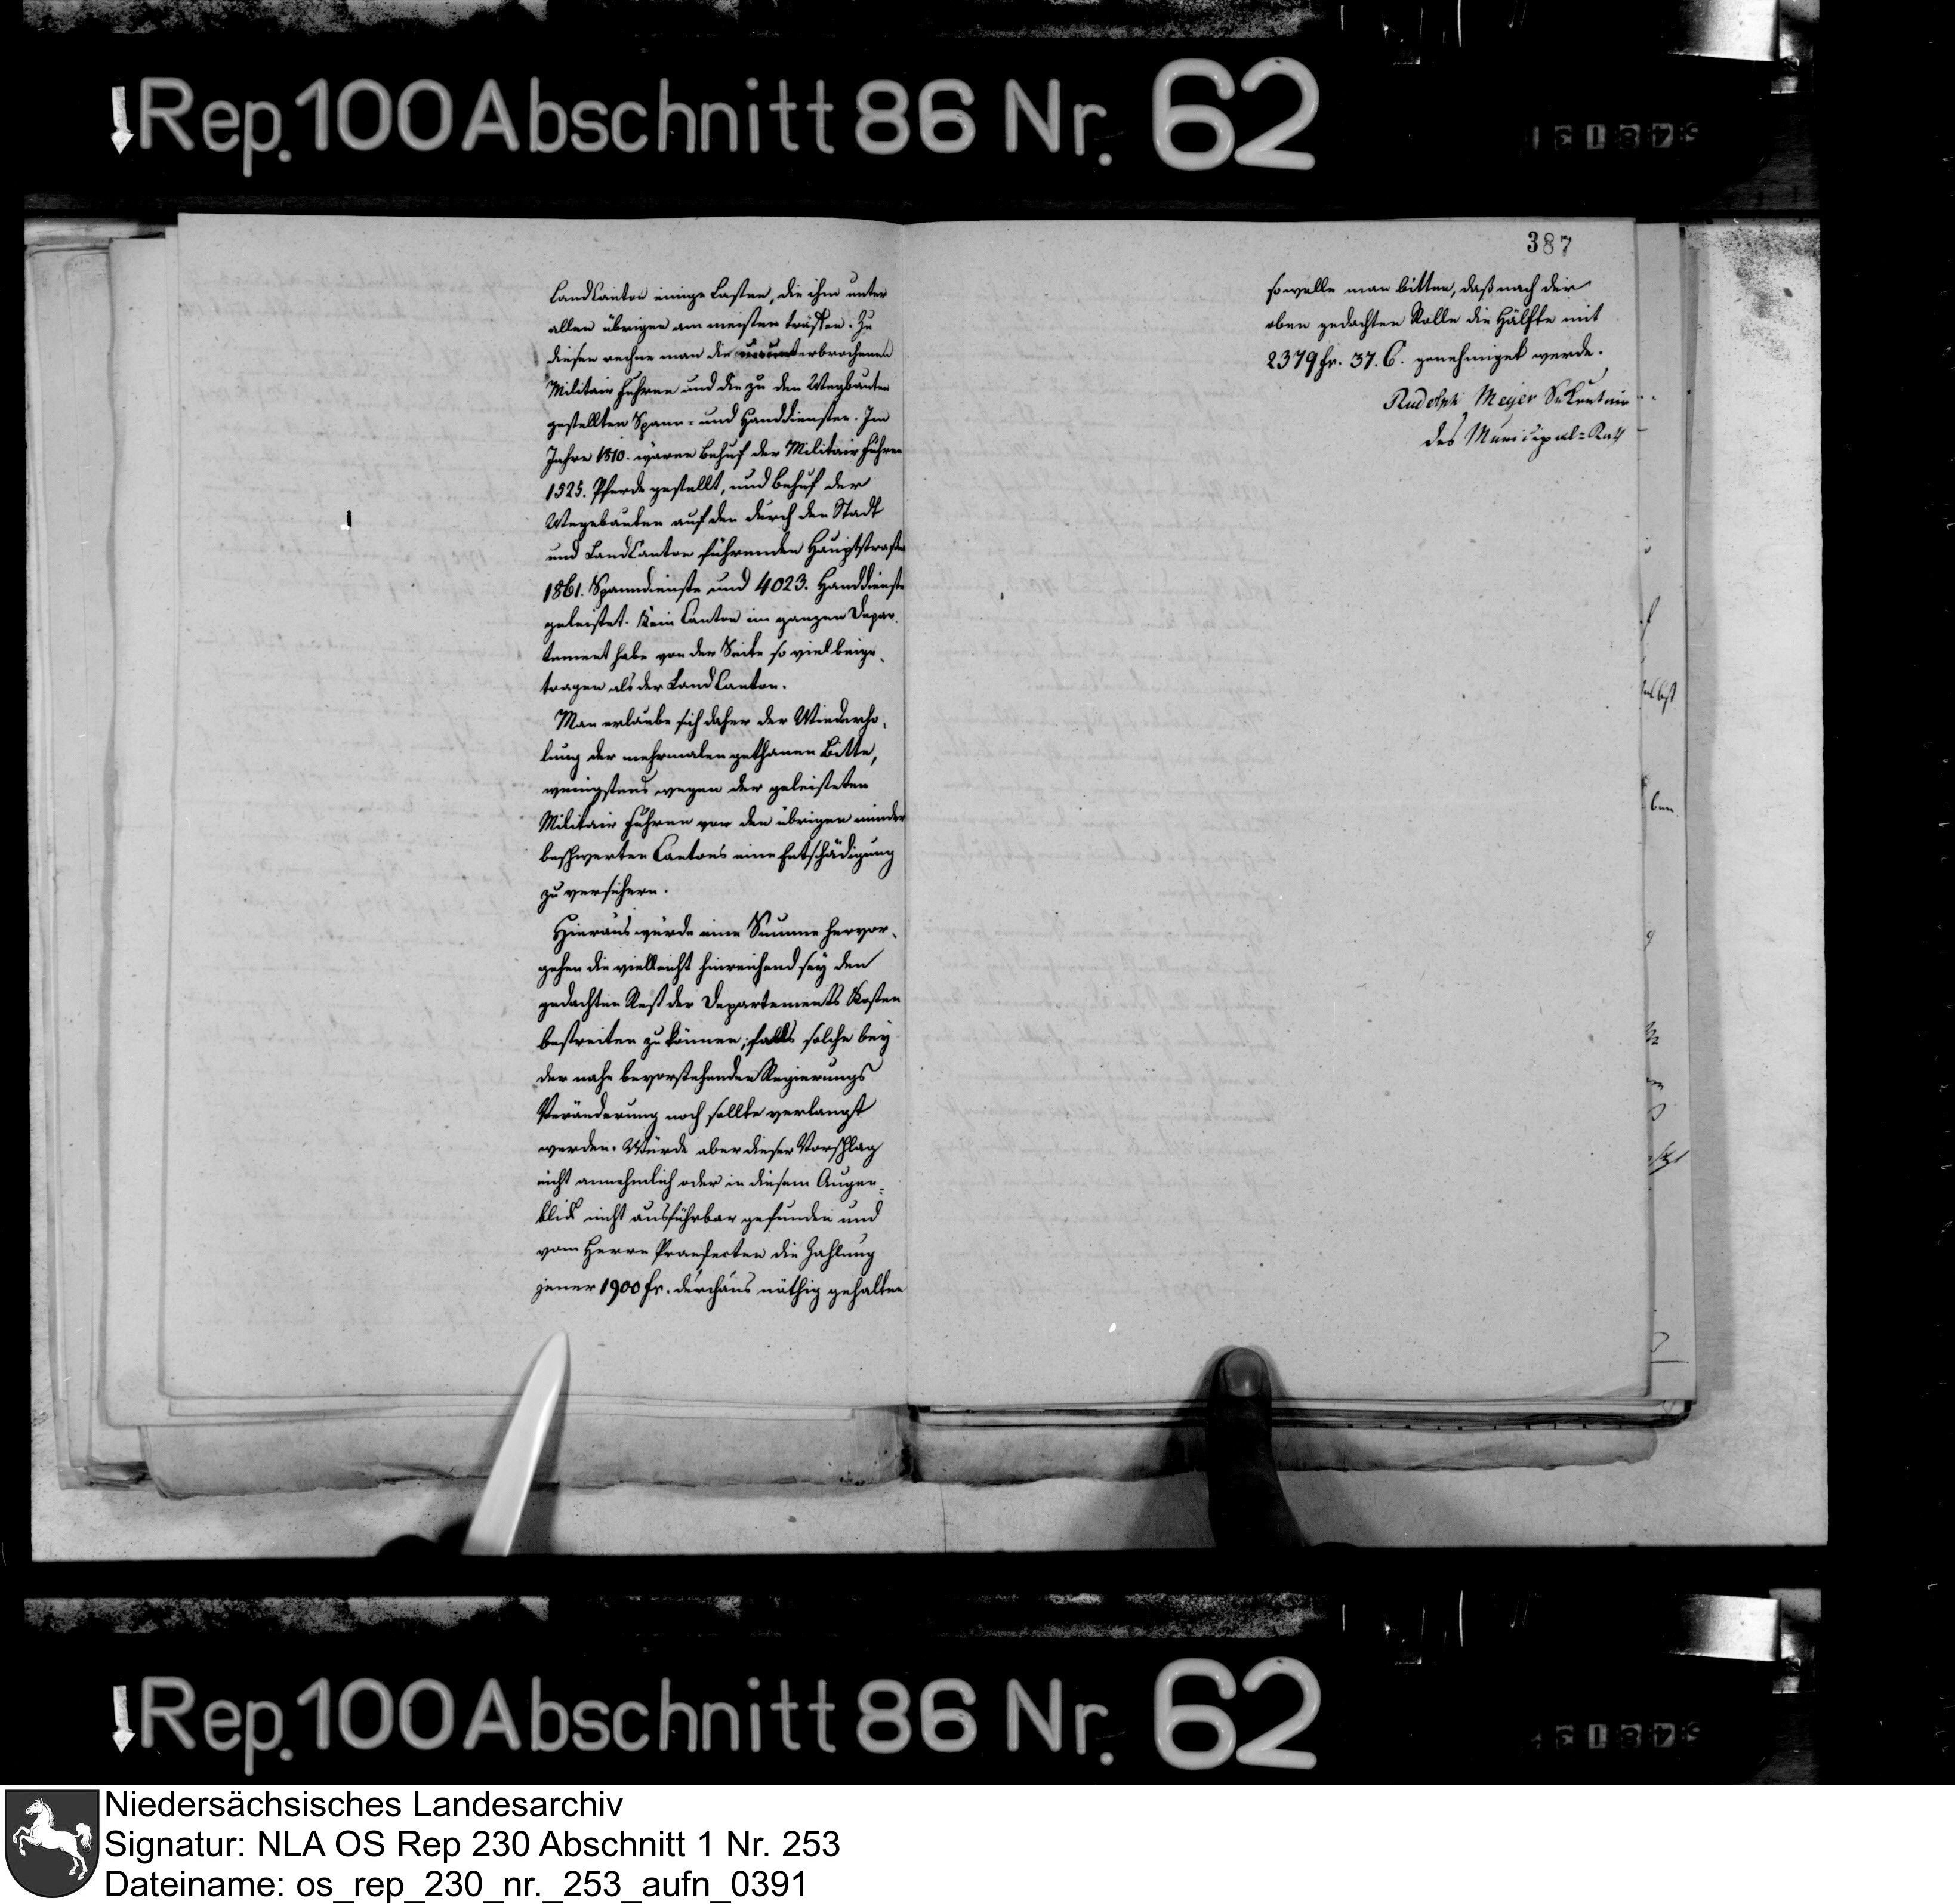 Rep. 100 Abschnitt 86 Nr. 62
LandCanton einige Lasten, die ihn unter
allen übrigen am meisten träffen. Zu
diesen rechne man die ununterbrochenen
Militair Fuhren und die zu den Wegbauten
gestellten Spann- und Handdienste. Im
Jahre 1810. wären Behuf der Militair Fuhren
1525. Pferde gestellt, und Behuf der
Wegebauten auf den durch den Stadt
und LandCanton führenden Hauptstraßen
1861. Spanndienste und 4023. Handdienste
geleistet. Kein Canton im ganzen Depar-
tement habe von der Seite so viel beige-
tragen als der LandCanton.
Man erlaube sich daher der Wiederho-
lung der mehrmalen gethanen Bitte,
wenigstens wegen der geleisteten
Militair Fuhren von den übrigen minder
beschwerten Cantons eine Entschädigung
zu versichern.
Hieraus würde eine Summe hervor-
gehen die vielleicht hinreichend sey den
gedachten Rest der Departements Kosten
bestreiten zu können; falls solche bey
der nahe bevorstehenden Regierungs
Veränderung noch sollte verlangt
werden. Würde aber dieser Vorschlag
nicht annehmlich oder in diesem Augen-
blick nicht ausführbar gefunden und
vom Herrn Praefecten die Zahlung
jener 1900 fr. durchaus nöthig gehalten
387
so wolle man bitten, daß nach der
oben gedachten Rolle die Hälfte mit
2379 fr. 37. C. genehmiget werde.
Rudolph Meyer Sekretair
des Municipal-Rath
Rep. 100 Abschnitt 86 Nr. 62
Niedersächsisches Landesarchiv
Signatur: NLA OS Rep 230 Abschnitt 1 Nr. 253
Dateiname: os_rep_230_nr._253_aufn_0391